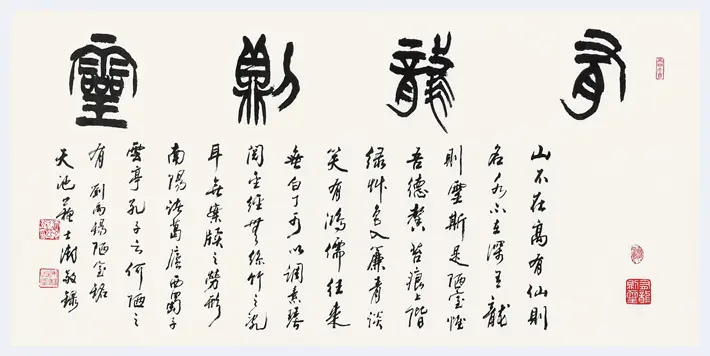 有龍則靈
山不在高有仙則
名水不在深有龍
則靈斯是陋室惟
吾德馨苔痕上階
綠艸色入簾青談
笑有鴻儒往來
無白丁可以調素琴
閱金經無絲竹之亂
耳無案牘之勞形
南陽諸葛廬西蜀子
雲亭孔子云何陋之
有 劉禹錫陋室銘
天池蘇士澍敬錄